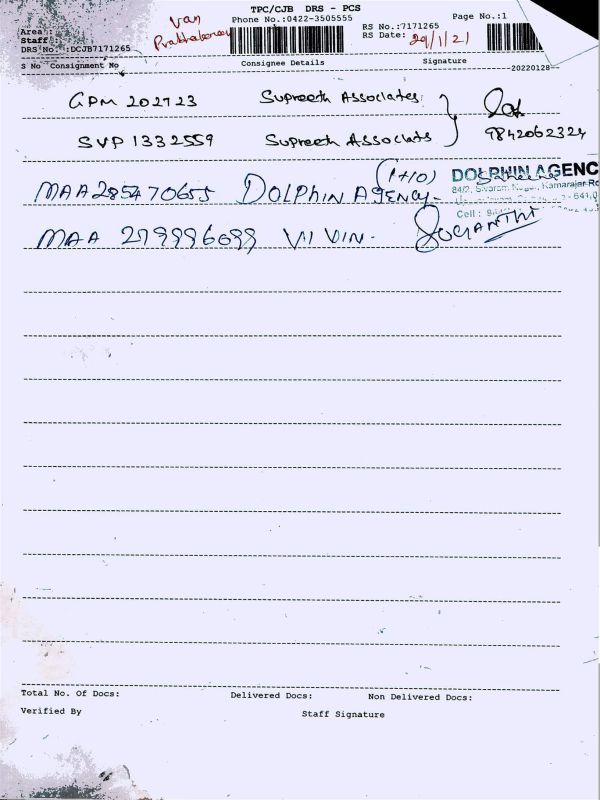 TPC/CJB DRS - PCS
Van
Phone No.:0422-3505555
Page No.:1
Area :
Staff :
Prabhakaran
RS No.:7171265
DRS No. :DCJB7171265
RS Date: 29/1/21
S No Consignment No Consignee Details Signature
20220128
GPM 202723 Supreeth Associates
SVP 1332559 Supreeth Associats 9842062324
MAA285470655 DOLPHIN AGENCY- (1+10)
DOLPHIN AGENC
84/2, Sivaram Nagar, Kamarajar Ro
Cell :
MAA 279996099 VIVIN- SUGANTHI
Total No. Of Docs: Delivered Docs: Non Delivered Docs:
Verified By Staff Signature